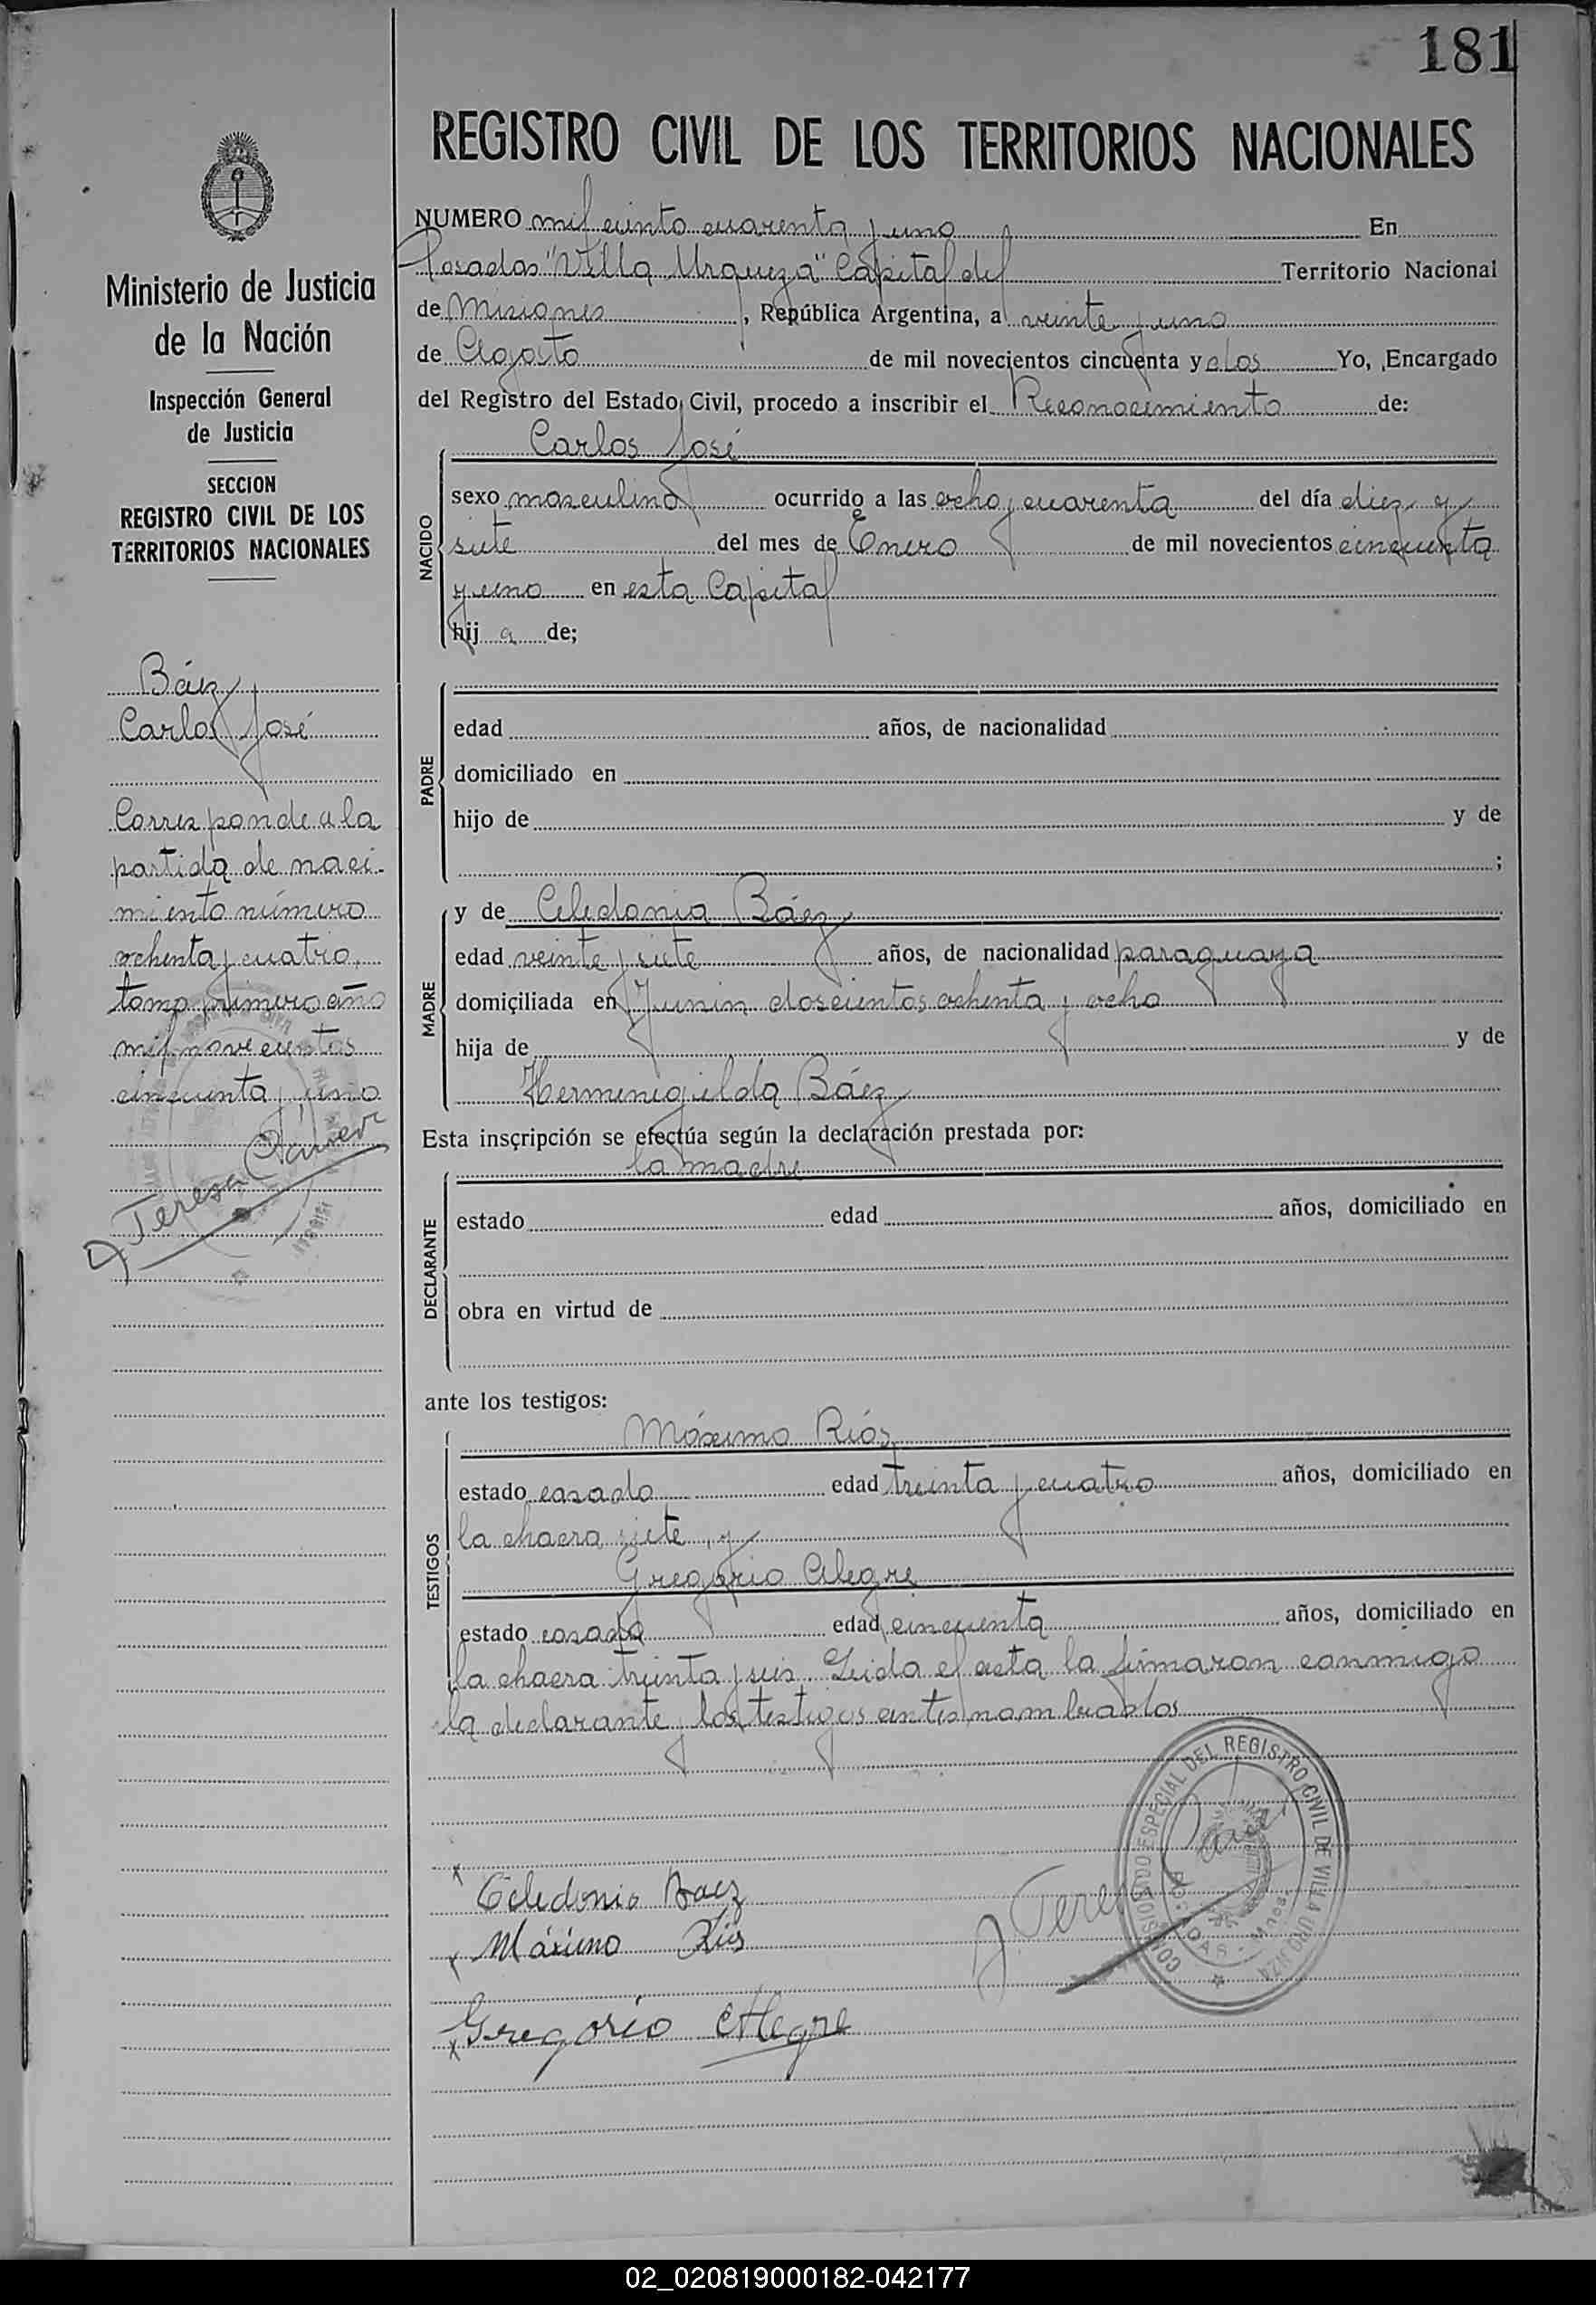 181
REGISTRO CIVIL DE LOS TERRITORIOS NACIONALES
NUMERO mil ciento cuarenta y uno En
Posadas "Villa Urquiza" Capital del Territorio Nacional
de Misiones, República Argentina, a veinte y uno
de Agosto de mil novecientos cincuenta y dos Yo, Encargado
del Registro del Estado Civil, procedo a inscribir el Reconocimiento de:
Carlos José
NACIDO
sexo masculino ocurrido a las ocho y cuarenta del día diez y
siete del mes de Enero de mil novecientos cincuenta
y uno en esta Capital
hij a de;
PADRE
edad años, de nacionalidad
domiciliado en
hijo de y de
;
MADRE
y de Celedonia Báez
edad veinte y siete años, de nacionalidad paraguaya
domiciliada en Junin doscientos ochenta y ocho
hija de y de
Hermenegilda Báez
Esta inscripción se efectúa según la declaración prestada por:
la madre
DECLARANTE
estado edad años, domiciliado en
obra en virtud de
ante los testigos:
TESTIGOS
Máximo Ríos
estado casado edad treinta y cuatro años, domiciliado en
la chacra siete y
Gregorio Alegre
estado casado edad cincuenta años, domiciliado en
la chacra treinta y seis. Leida el acta la firmaron conmigo
la declarante y los testigos antes nombrados
x Celedonia Baez
x Máximo Ríos
x Gregorio Alegre
J. Teresa
COMISIONADO ESPECIAL DEL REGISTRO CIVIL DE VILLA URQUIZA
POSADAS - Mnes.
Ministerio de Justicia
de la Nación
Inspección General
de Justicia
SECCION
REGISTRO CIVIL DE LOS
TERRITORIOS NACIONALES
Báez
Carlos José
Corresponde a la
partida de naci-
miento número
ochenta y cuatro,
tomo primero año
mil novecientos
cincuenta y uno
J. Teresa
02_020819000182-042177